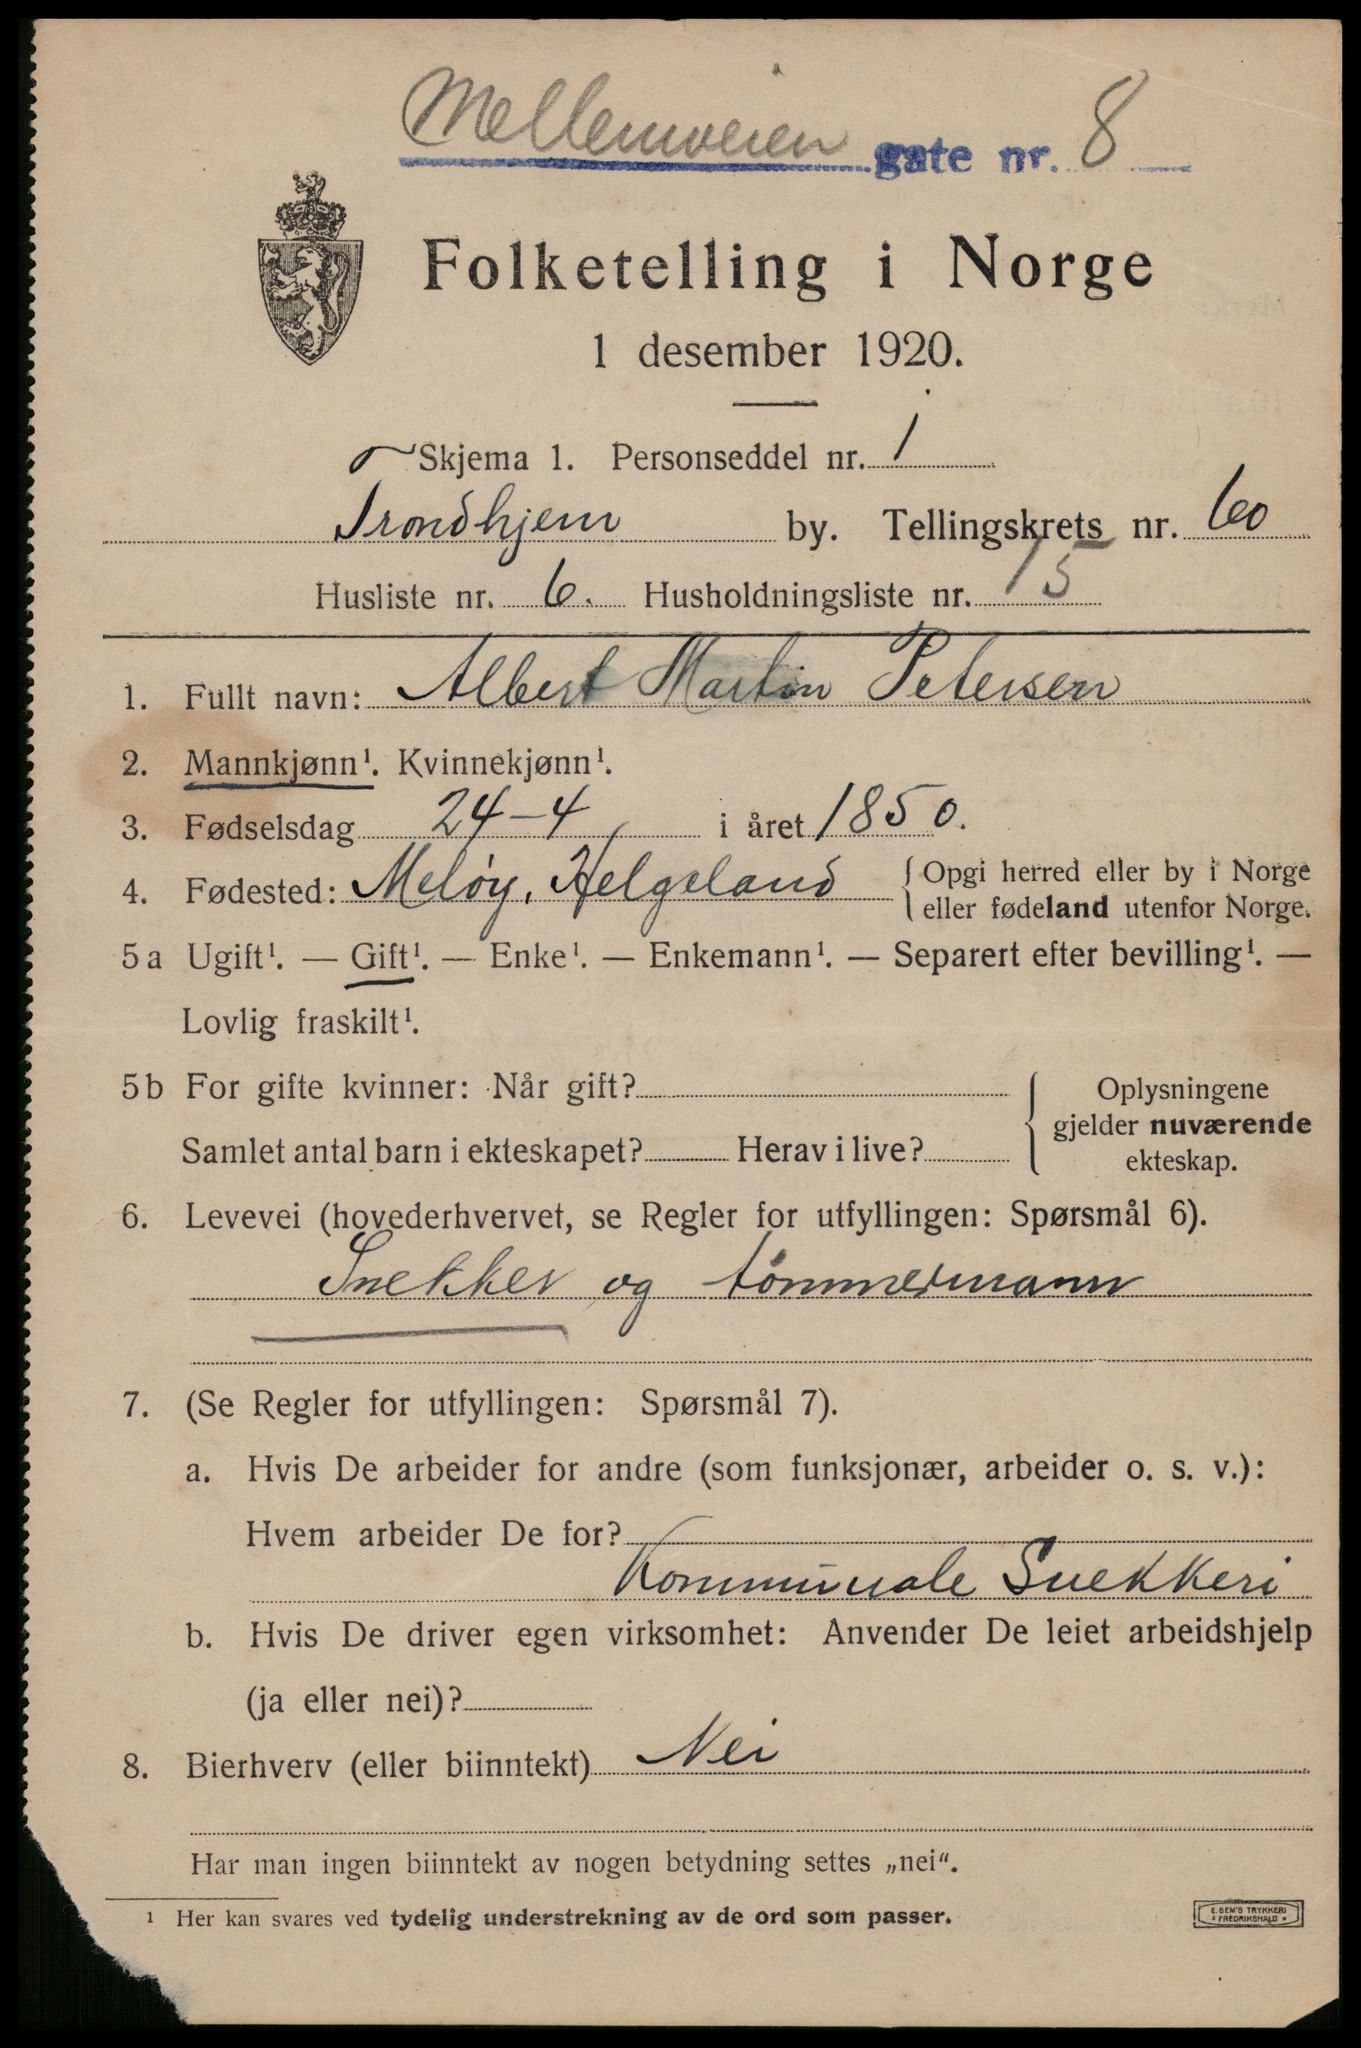 Mellemveien gate nr. 8
Folketelling i Norge
1 desember 1920.
Skjema 1. Personseddel nr. 1
Trondhjem by. Tellingskrets nr. 60
Husliste nr. 6. Husholdningsliste nr. 15
1. Fullt navn: Albert Martin Petersen
2. Mannkjønn¹. Kvinnekjønn¹.
3. Fødselsdag 24-4 i året 1850.
4. Fødested: Meløy, Helgeland { Opgi herred eller by i Norge
eller fødeland utenfor Norge.
5a Ugift¹. — Gift¹. — Enke¹. — Enkemann¹. — Separert efter bevilling¹. —
Lovlig fraskilt¹.
5b For gifte kvinner: Når gift? { Oplysningene
gjelder nuværende
Samlet antal barn i ekteskapet? Herav i live? ekteskap.
6. Levevei (hovederhvervet, se Regler for utfyllingen: Spørsmål 6).
Snekker og tømmermann
7. (Se Regler for utfyllingen: Spørsmål 7).
a. Hvis De arbeider for andre (som funksjonær, arbeider o. s. v.):
Hvem arbeider De for?
Kommunale Snekkeri
b. Hvis De driver egen virksomhet: Anvender De leiet arbeidshjelp
(ja eller nei)?
8. Bierhverv (eller biinntekt) Nei
Har man ingen biinntekt av nogen betydning settes „nei“.
¹ Her kan svares ved tydelig understrekning av de ord som passer.
E. SEM'S TRYKKERI
FREDRIKSHALD